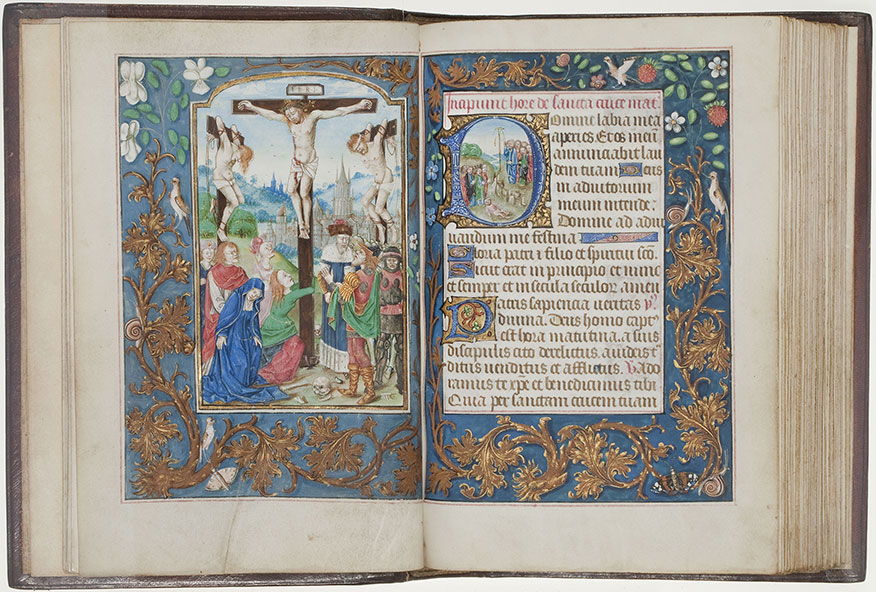 INRI
Incipiunt hore de sancta cruce mat.
Domine labia mea
aperies Et os meũ
annunciabit lau
dem tuam Deus
in adiutorium
meum intende.
Domine ad adiu
uandum me festina
Gloria patri et filio et spiritui scõ
Sicut erat in principio et nunc
et semper et in secula seculor amen
Patris sapiencia veritas
diuina. Deus homo capt
est hora matutina. a suis
discipulis cito derelictus. a iudeis t
ditus venditus et afflictus. Ado
ramus te xpe et benedicimus tibi
Quia per sanctam crucem tuam